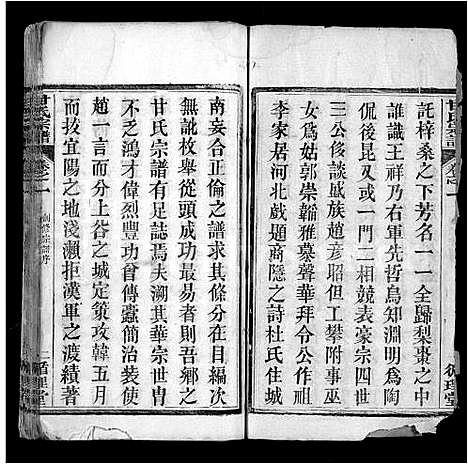 託梓桑之下芳名一一全歸梨棗之中
誰識王祥乃右軍先哲烏知淵明為陶
侃後昆或一門二相競表豪宗四世
三公侈談戚族趙彥昭但工攀附事巫
女為姑郭崇韜雅慕聲華拜令公作祖
李家居河北戲題商隱之詩杜氏住城
甘氏宗譜
卷之一
循理堂
南妄合正倫之譜求其條分在目編次
無訛枚舉從頭本支不紊者則吾鄉之
甘氏宗譜有足誌焉夫溯其華宗世冑
不乏鴻才偉烈豐功奮傳蠹簡治裝使
趙一言而分上谷之城定策攻韓五月
而拔宜陽之地淺瀨拒漢軍之渡績著
甘氏宗譜
卷之一
二
循理堂